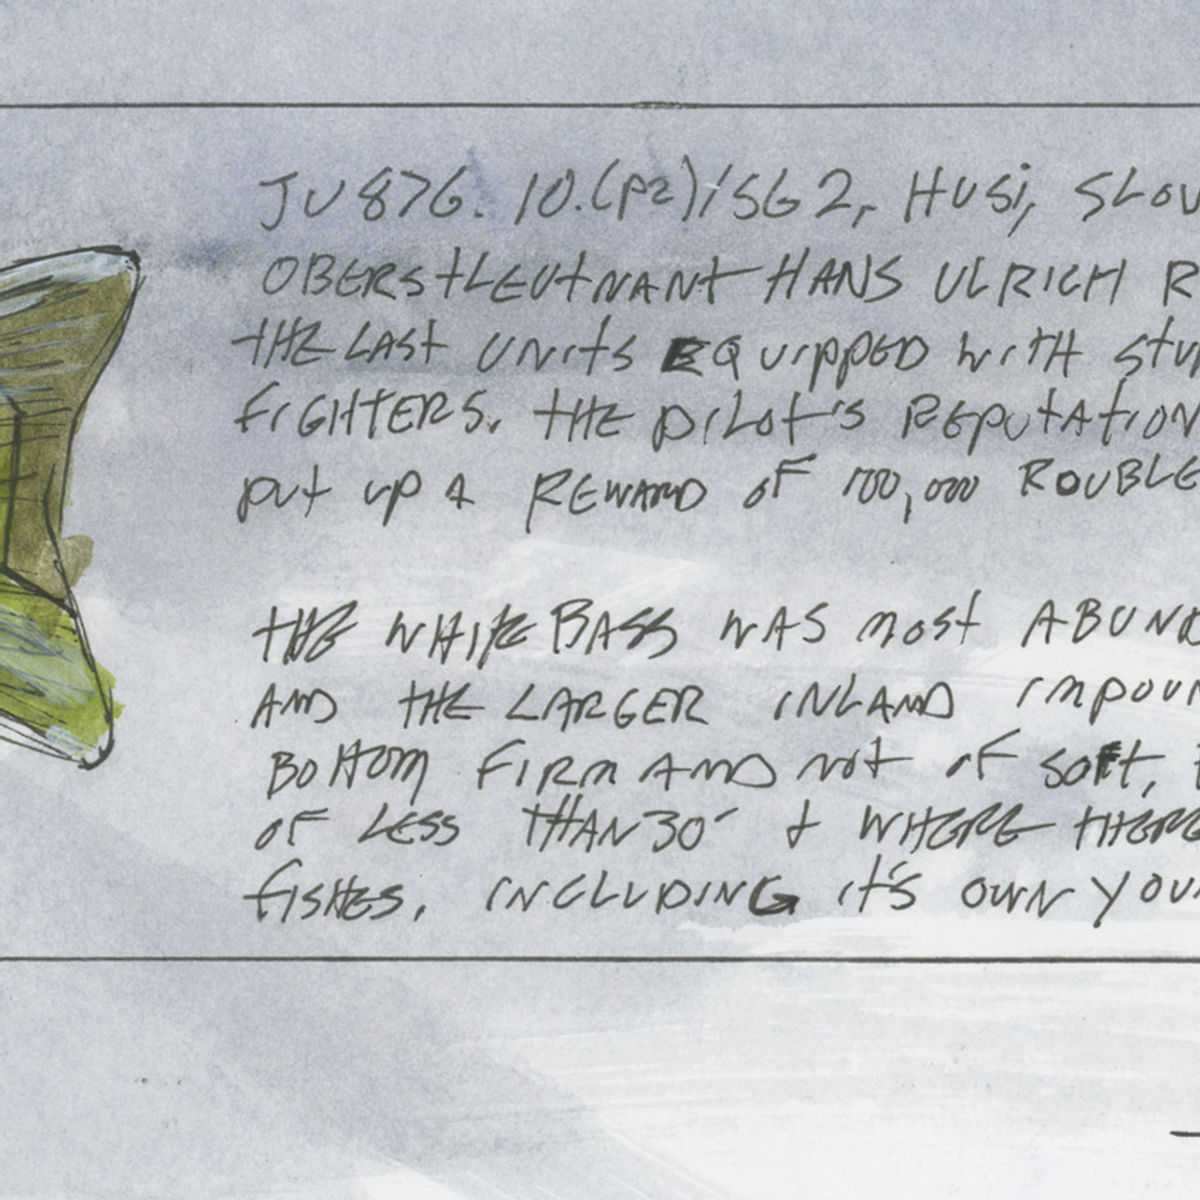 JU 87G. 10.(PZ)/SG 2, HUSi, SLOV
OBERSTLEUTNANT HANS ULRICH R
THE LAST UNITS EQUIPPED WITH STU
FIGHTERS. THE PILOT'S REPUTATION
PUT UP A REWARD OF 100,000 ROUBLE
THE WHITE BASS WAS MOST ABUND
AND THE LARGER INLAND IMPOUN
BOTTOM FIRM AND NOT OF SOFT,
OF LESS THAN 30' & WHERE THERE
FISHES, INCLUDING IT'S OWN YOU